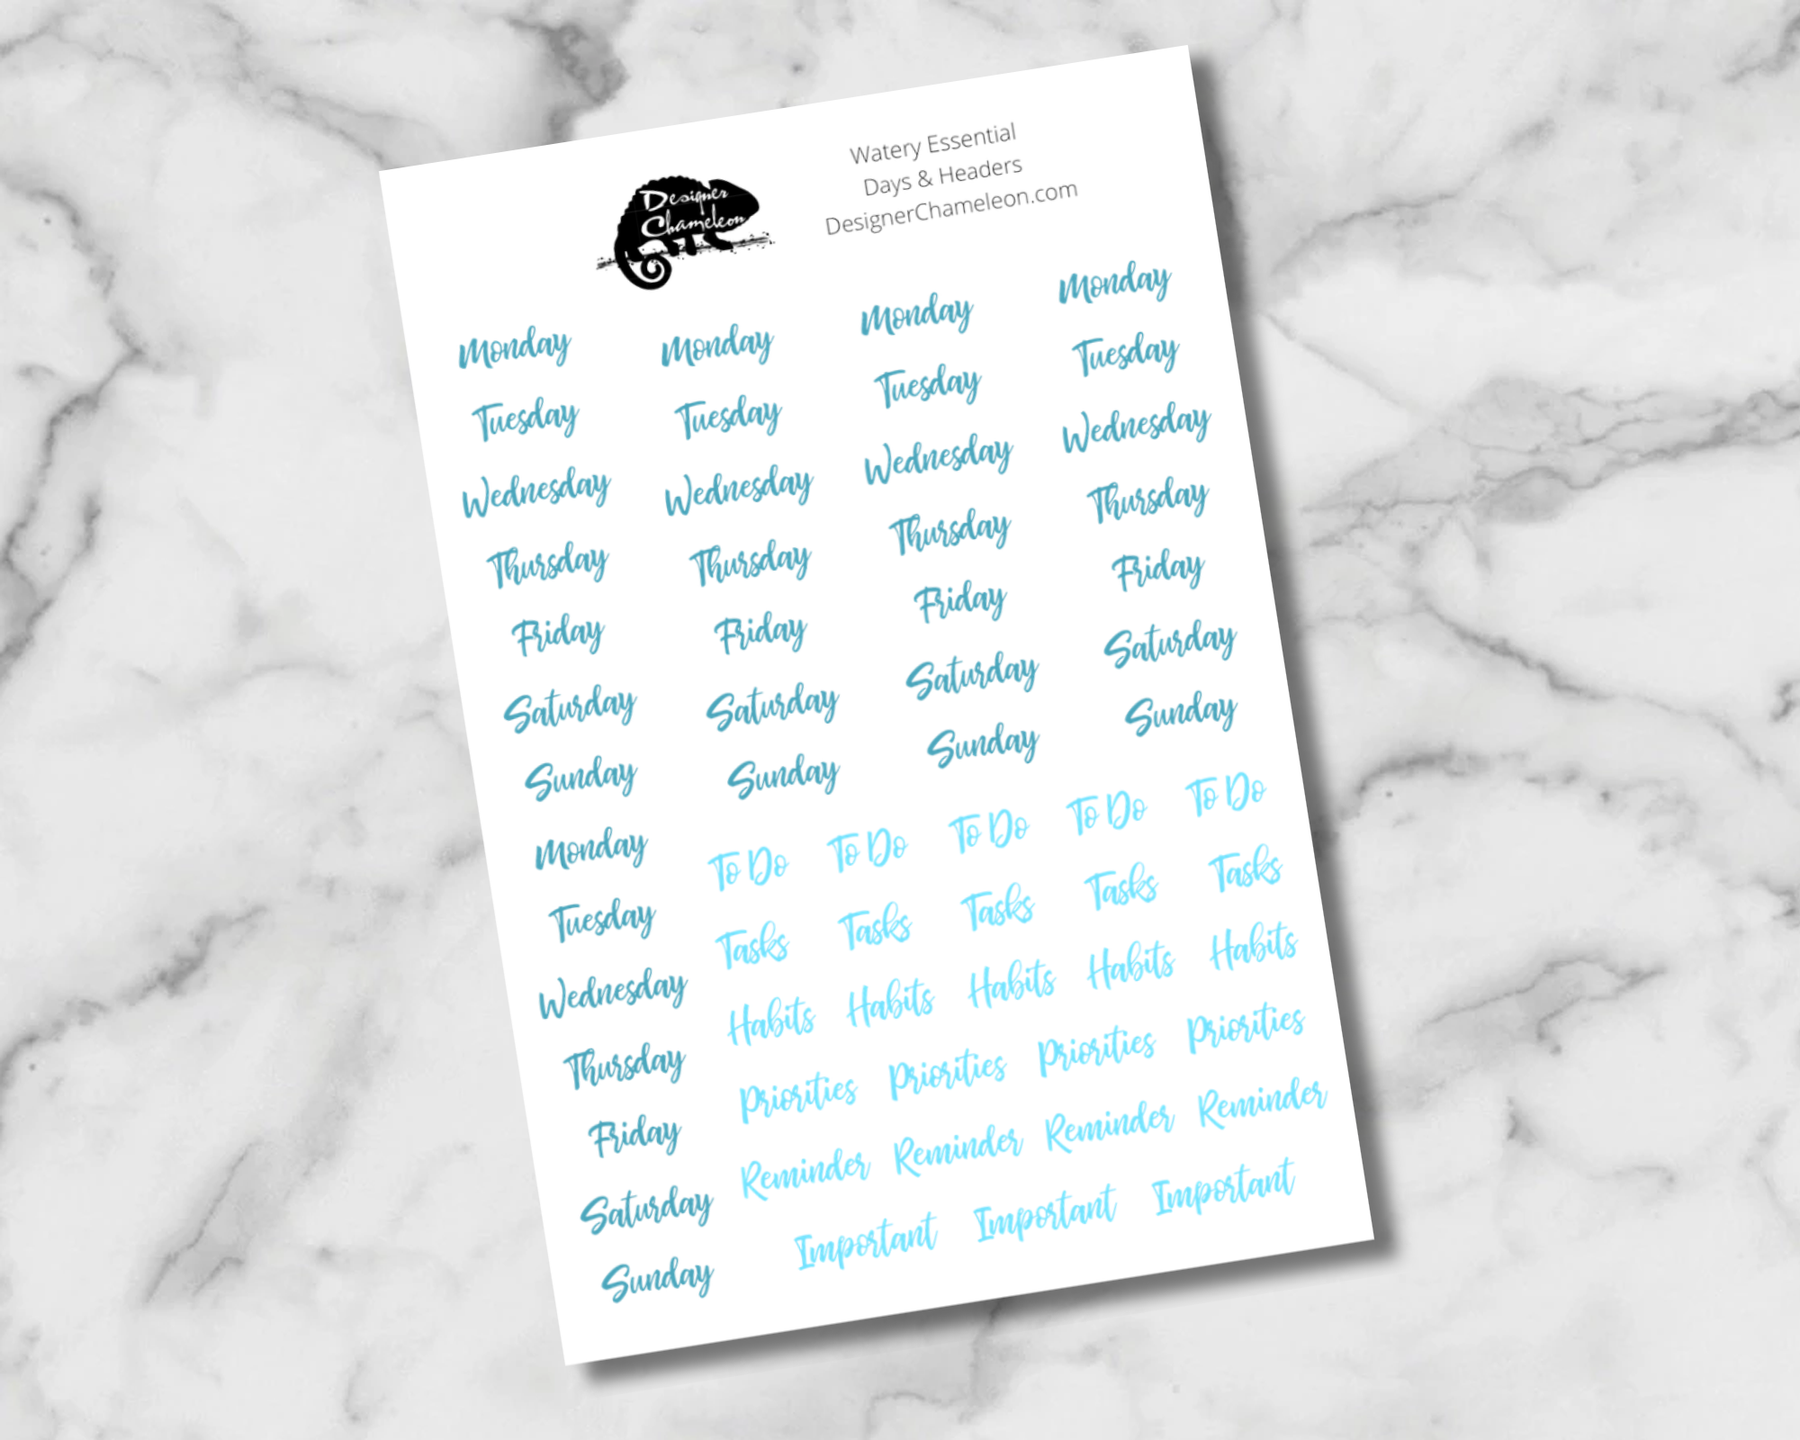 Designer
Chameleon
Watery Essential
Days & Headers
DesignerChameleon.com
Monday Monday Monday Monday
Tuesday Tuesday Tuesday Tuesday
Wednesday Wednesday Wednesday Wednesday
Thursday Thursday Thursday Thursday
Friday Friday Friday Friday
Saturday Saturday Saturday Saturday
Sunday Sunday Sunday Sunday
Monday To Do To Do To Do To Do To Do
Tuesday Tasks Tasks Tasks Tasks Tasks
Wednesday Habits Habits Habits Habits Habits
Thursday Priorities Priorities Priorities Priorities
Friday Reminder Reminder Reminder Reminder
Saturday Important Important Important
Sunday